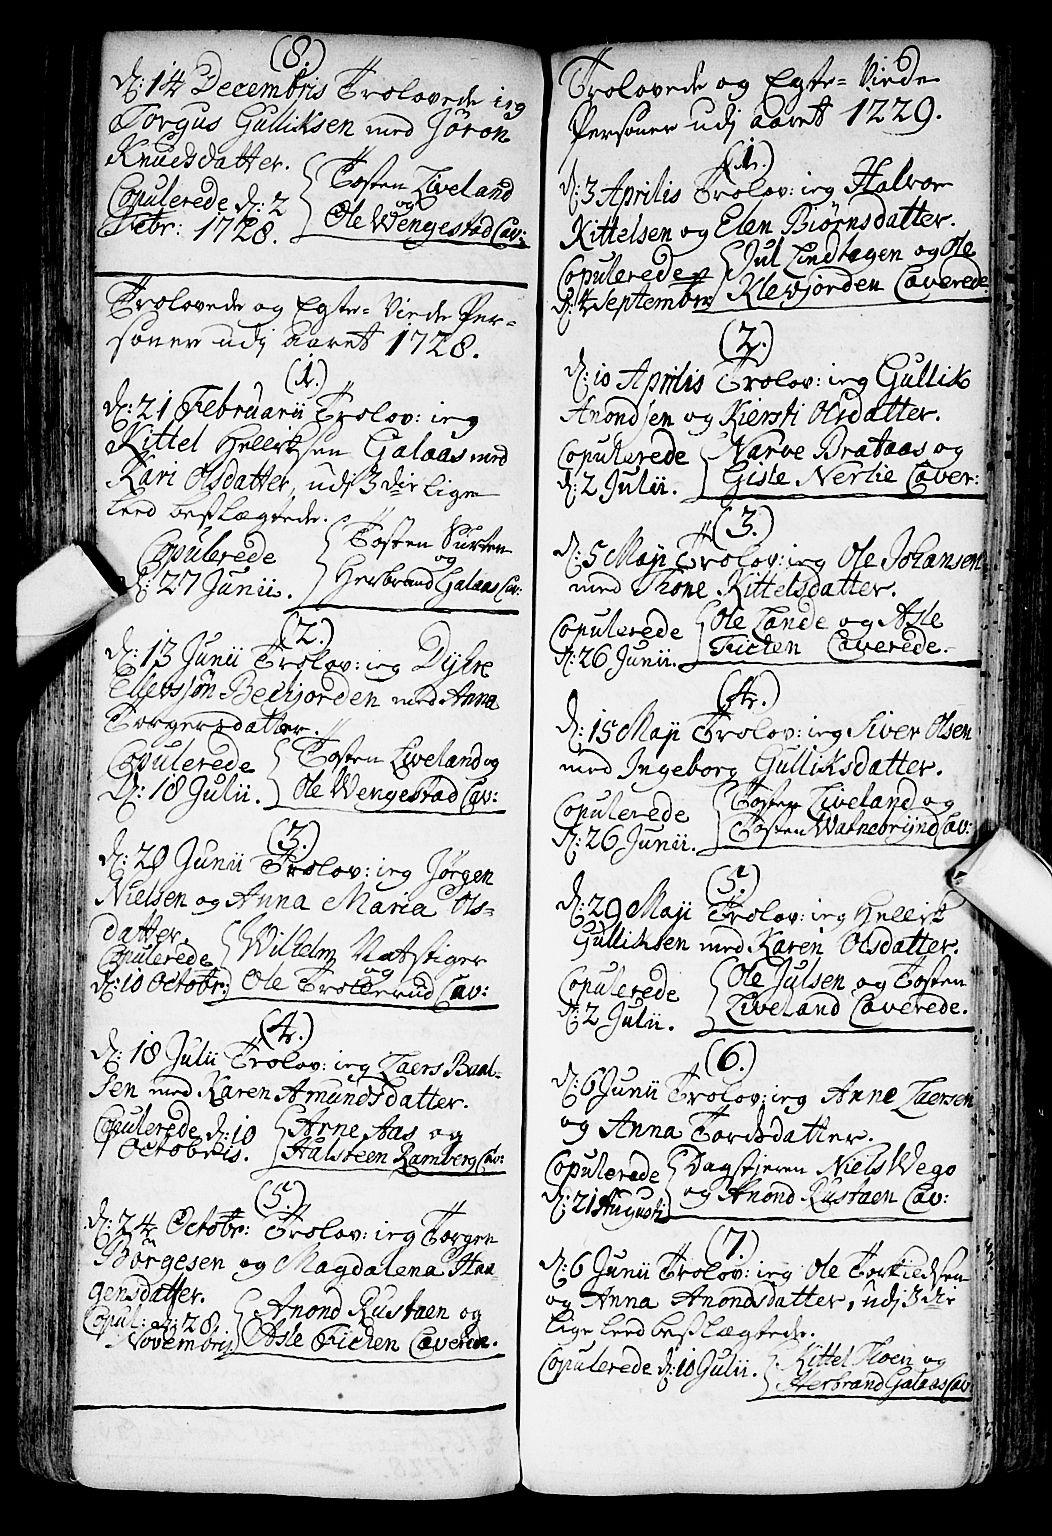 (8.)
d: 14 Decembris Trolovede ieg
Torgus Gulliksen med Jøron
Knudsdatter.
Copulerede d: 2
Febr: 1728.
Tosten Liveland
og
Ole Wengestad Cav:
Trolovede og Egte-Viede Per-
soner udj Aaret 1728.
(1.)
d: 21 Februarii Trolov: ieg
Kittel Hellichsen Galaas med
Kari Olsdatter, udj 3die lige
leed beslægtede.
Copulerede
d: 27 Junii.
Tosten Surten
og
Herbrand Galaas Cav:
(2.)
d: 13 Junii Trolov: ieg Dyhre
Ellevsøn Bechjorden med Anna
Torgersdatter.
Copulerede
D: 18 Julii.
Tosten Liveland og
Ole Wengestad Cav:
(3.)
d: 20 Junii Trolov: ieg Jørgen
Nielsen og Anna Maria Ols-
datter.
Copulerede
d: 10 Octobr:
Wilhelm Natstiger
og
Ole Trollerud Cav:
(4.)
d: 18 Julii Trolov: ieg Laers Baal-
sen med Karen Amundsdatter.
Copulerede d: 10
Octobris.
Arne Aas og
Halsteen Ramberg Cav:
(5.)
d: 24 Octobr: Trolov: ieg Torgen
Børgesen og Magdalena Haa-
gensdatter.
Copul: d: 28.
Novembris
Anond Rustaen og
Asle Ticten Caverede.
Trolovede og Egte-Viede
Personer udj Aaret 1229.
(1.)
d: 3 Aprilis Trolov: ieg Halvor
Kittelsen og Elen Biørnsdatter.
Copulerede
d: 4 Septembr
Jul Lindtagen og Ole
Klevjorden Caverede
(2.)
d: 10 Aprilis Trolov: ieg Gullik
Anondsen og Kiersti Olsdatter.
Copulerede
d: 2 Julii.
Narve Brataas og
Gisle Nerlie Caver:
(3.)
d: 5 Maji Trolov: ieg Ole Johansen
med Thone Kittelsdatter.
Copulerede
d: 26 Junii.
Ole Lande og Asle
Ticten Caverede.
(4.)
d: 15 Maji Trolov: ieg Siver Olsen
med Ingeborg Gulliksdatter.
Copulerede
d: 26 Junii.
Tosten Liveland og
Tosten Watnebrynd Cav:
(5.)
d: 29 Maji Trolov: ieg Hellick
Gulliksen med Karen Olsdatter.
Copulerede
d: 2 Julii.
Ole Julsen og Tosten
Liveland Caverede.
(6.)
d: 6 Junii Trolov: ieg Anne Laersen
og Anna Tordsdatter.
Copulerede
d: 21 Augusti
Dagstjeren Niels Wego
og Anond Rustaen Cav:
(7.)
d: 6 Junii Trolov: ieg Ole Torkiedsen
og Anna Anondsdatter, udj 3die
lige leed beslægtede.
Copulerede d: 10 Julii.
Kittel Hoen og
Herbrand Galaas Cav: